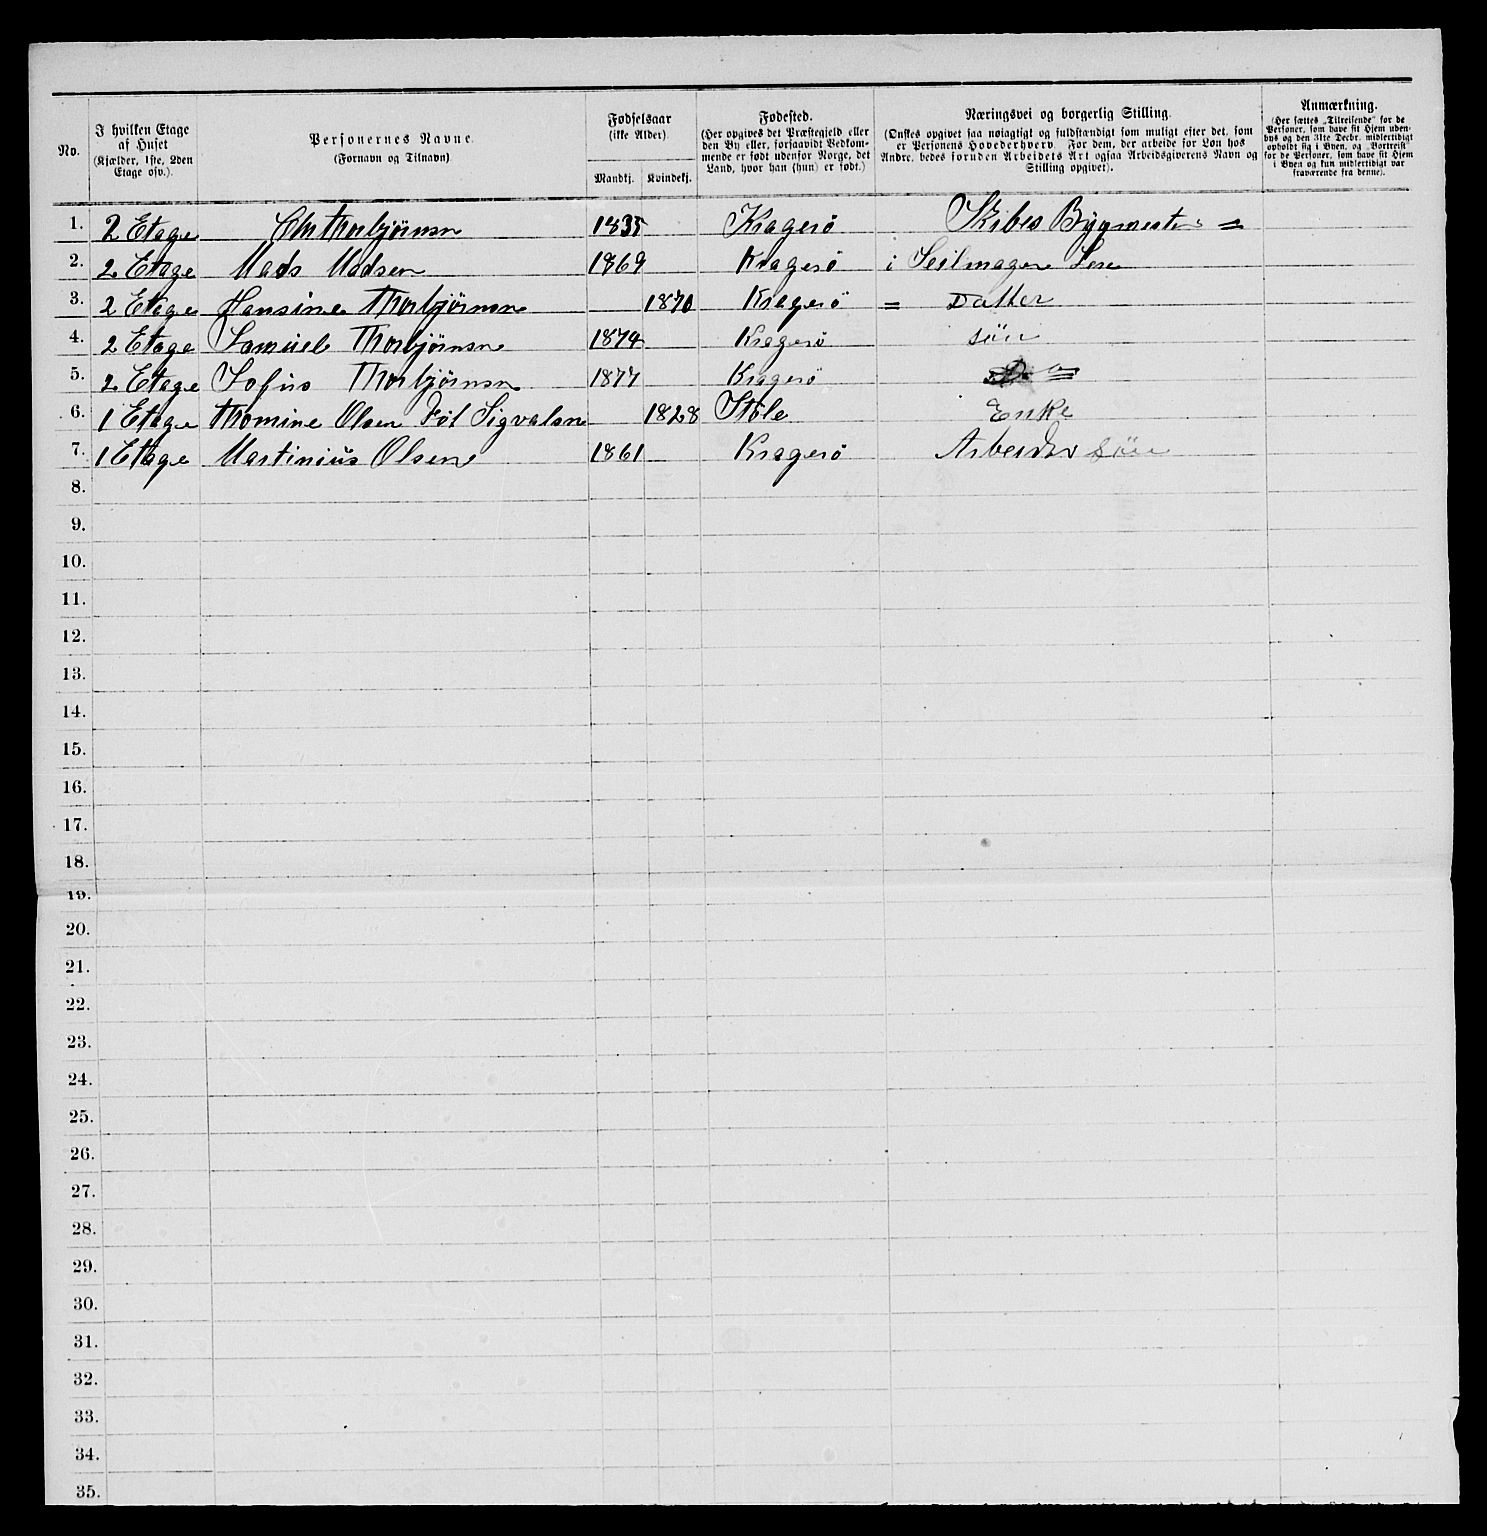 No.
I hvilken Etage af Huset (Kjælder, 1ste, 2den Etage osv.).
Personernes Navne. (Fornavn og Tilnavn)
Fødselsaar (ikke Alder).
Mandkj. Kvindekj.
Fødested. (Her opgives det Præstegjeld eller den By eller, forsaavidt Vedkommende er født udenfor Norge, det Land, hvor han (hun) er født.)
Næringsvei og borgerlig Stilling. (Ønskes opgivet saa nøiagtigt og fuldstændigt som muligt efter det, som er Personens Hovederhverv. For dem, der arbeide for Løn hos Andre, bedes foruden Arbeidets Art ogsaa Arbeidsgiverens Navn og Stilling opgivet).
Anmærkning. (Her sættes „Tilreisende“ for de Personer, som have sit Hjem udenbys og den 31te Decbr. midlertidigt opholdt sig i Byen, og „Bortreist“ for de Personer, som have sit Hjem i Byen og kun midlertidigt var fraværende fra denne).
1. 2 Etage Chr Thorbjörnsn 1835 Kragerö Skibs Bÿgmester =
2. 2 Etage Mads Madsen 1869 Kragerö i Seilmager Lere
3. 2 Etage Hansine Thorbjörnsn 1870 Kragerö = Datter
4. 2 Etage Samuel Thorbjörnsn 1874 Kragerö sön
5. 2 Etage Sofus Thorbjörnsn 1877 Kragerö
6. 1 Etage Thomine Olsen Föt Sigvalsn 1828 Stöle Enke
7. 1 Etage Martinius Olsen 1861 Kragerö Arbeider Sön
8.
9.
10.
11.
12.
13.
14.
15.
16.
17.
18.
19.
20.
21.
22.
23.
24.
25.
26.
27.
28.
29.
30.
31.
32.
33.
34.
35.